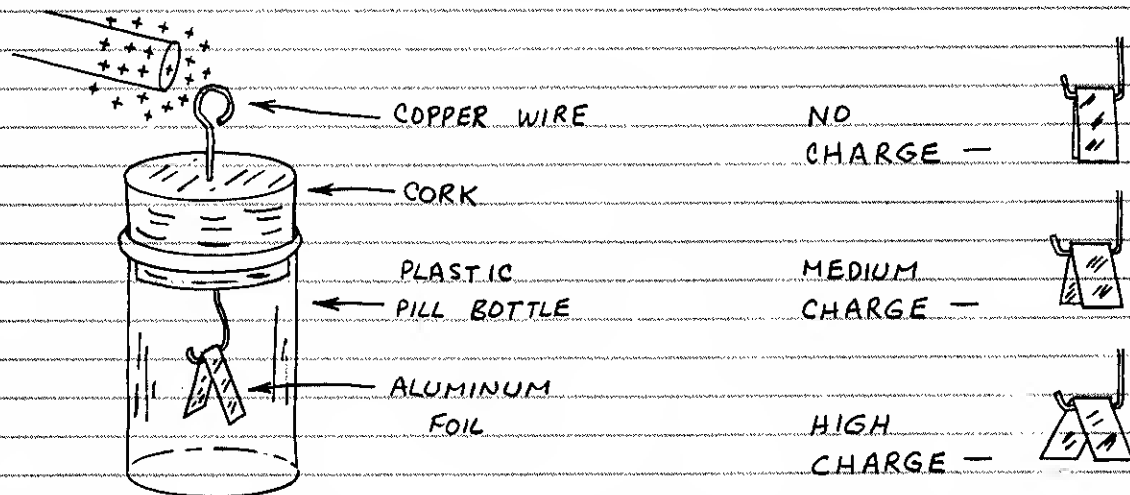 COPPER WIRE
CORK
PLASTIC
PILL BOTTLE
ALUMINUM
FOIL
NO
CHARGE —
MEDIUM
CHARGE —
HIGH
CHARGE —